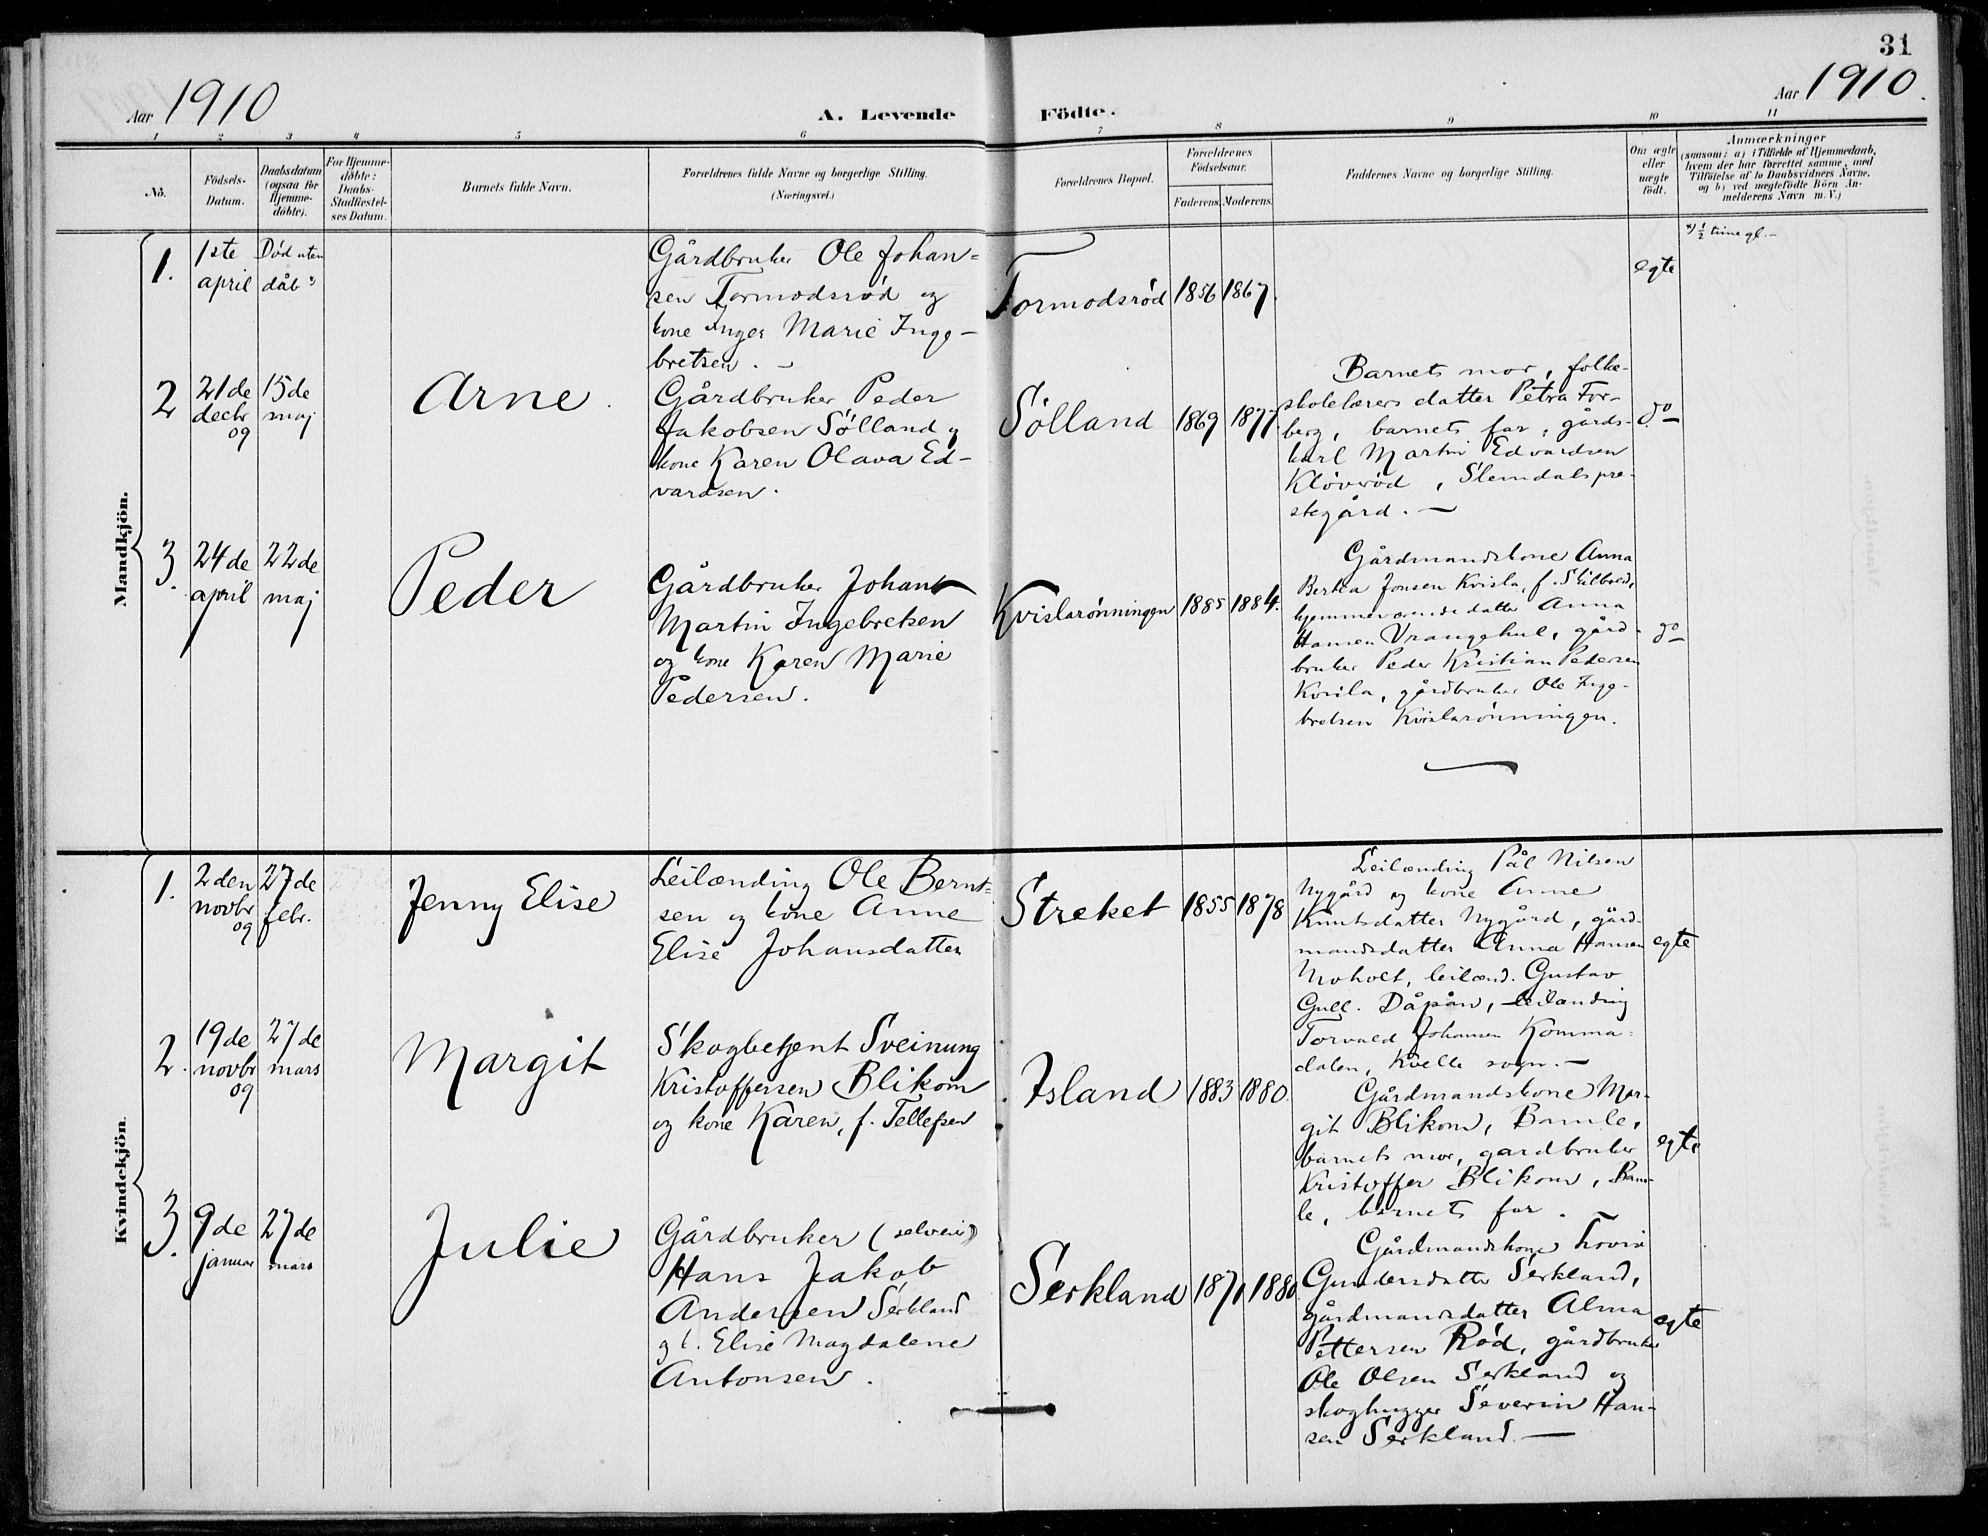 31
Aar 1910
A. Levende Födte.
Aar 1910.
1 2 3 4 5 6 7 8 9 10 11
No.
Födsels-
Datum.
Daabsdatum
(ogsaa for
Hjemme-
döbte).
For Hjemme-
döbte:
Daabs-
Stadfæstel-
ses Datum.
Barnets fulde Navn.
Forældrenes fulde Navne og borgerlige Stilling.
(Næringsvei.)
Forældrenes Bopæl.
Forældrenes
Födselsaar.
Faderens. Moderens.
Faddernes Navne og borgerlige Stilling.
Om ægte
eller
uægte
födt.
Anmærkninger
(saasom: a) i Tilfælde af Hjemmedaab,
hvem der har forrettet samme, med
Tilföielse af to Daabsvidners Navne,
og b) ved uægtefödte Börn An-
melderens Navn m. V.)
Mandkjön.
1.
1ste
april
Död uten
dåb *)
Gårdbruker Ole Johan=
sen Tormodsröd og
kone Inger Marie Inge-
bretsen. -
Tormodsröd
1856
1867.
egte
*) 1/2 time gl. -
2
21de
decbr
09
15de
maj
Arne.
Gårdbruker Peder
Jakobsen Sölland og
kone Karen Olava Ed-
vardsen.
Sölland
1869
1877
Barnets mor, folke-
skolelærers datter Petra For-
berg, barnets far, gårds-
karl Martin Edvardsen
Klöveröd, Slemdals pre-
stegård. -
do
3.
24de
april
22de
maj
Peder
Gårdbruker Johan
Martin Ingebretsen
og kone Karen Marie
Pedersen.
Kvislarönningen
1885
1884.
Gårdmandskone Anna
Bertea Jonsen Kvisla, f.
hjemmeværende datter Anna
Hansen Vrangghul, gård-
bruker Peder Kristian Pedersen
Kvisla, gårdbruker Ole Inge-
bretsen Kvislarönningen.
do
Kvindekjön.
1.
2den
novbr
09
27de
febr.
Jenny Elise
Leilænding Ole Bernt=
sen og kone Anne
Elise Johansdatter
Streket
1855
1878
Leilænding Pål Nilsen
Nygård og kone Anne
Knutsdatter Nygård, gård-
mandsdatter Anna Hansen
Moholt, leilænd. Gustav
Gull. Dåpån, leilænding
Torvald Johansen Komma=
dalen, Kvelle sogn. -
egte
2.
19de
novbr
09
27de
mars
Margit
Skogbetjent Sveinung
Kristoffersen Blikom
og kone Karen, f. Tellefsen
Island
1883
1880.
Gårdmandskone Mar-
git Blikom, Bamle,
barnets mor, gardbruker
Kristoffer Blikom, Bam-
le, barnets far.
egte
3.
9de
januar
27de
mars
Julie
Gårdbruker (selveier)
Hans Jakob
Andersen Serkland
og k. Elise Magdalene
Antonsen.
Serkland
1871
1880.
Gårdmandskone Lovise
Gundersdatter Serkland,
gårdmandsdatter Alma
Pettersen Röd, gårdbruker
Ole Olsen Serkland og
skoghugger Severin Han-
sen Serkland. -
egte